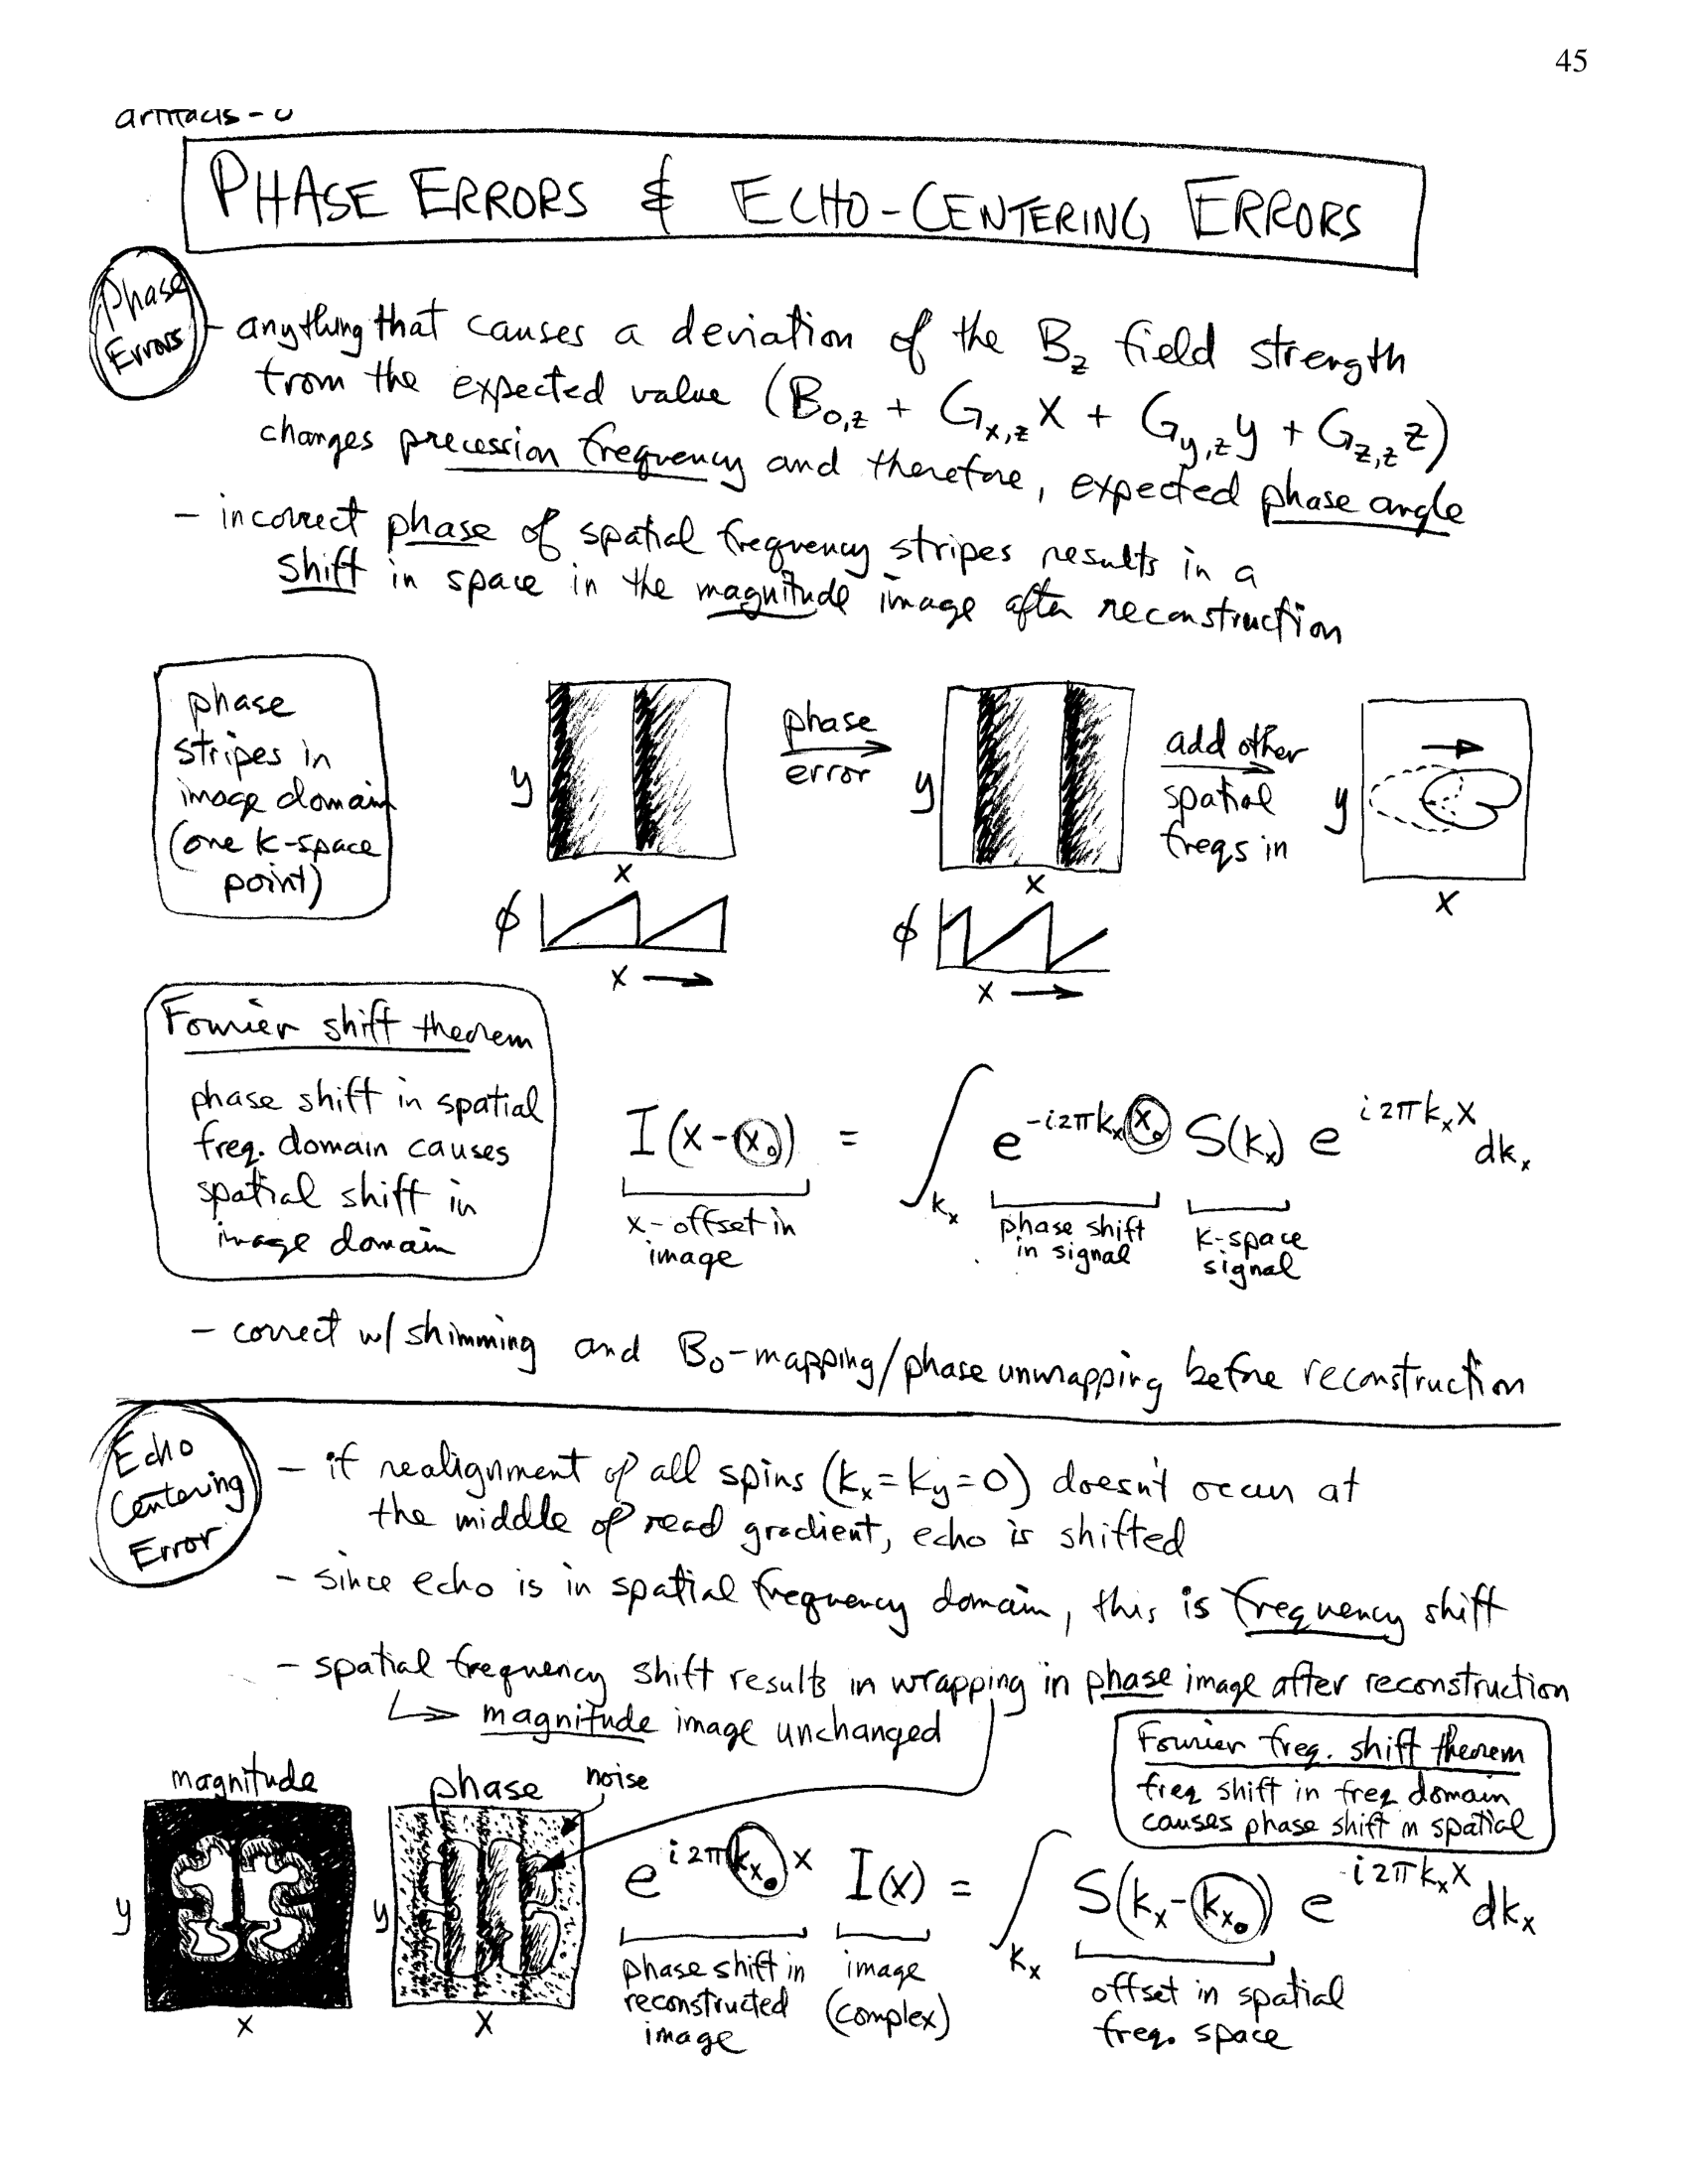 45
artifacts - 0
PHASE ERRORS & ECHO-CENTERING ERRORS
Phase
Errors
- anything that causes a deviation of the B_z field strength
from the expected value (B_{0,z} + G_{x,z} x + G_{y,z} y + G_{z,z} z)
changes precession frequency and therefore, expected phase angle
- incorrect phase of spatial frequency stripes results in a
shift in space in the magnitude image after reconstruction
phase
stripes in
image domain
(one k-space
point)
y
x
ϕ
x →
phase
error
y
x
ϕ
x →
add other
spatial
freqs in
y
x
Fourier shift theorem
phase shift in spatial
freq. domain causes
spatial shift in
image domain
I(x-x_0) = ∫_{k_x} e^{-i2πk_x x_0} S(k_x) e^{i2πk_x x} dk_x
x-offset in
image
phase shift
in signal
k-space
signal
- correct w/ shimming and B_0-mapping/phase unwrapping before reconstruction
Echo
Centering
Error
- if realignment of all spins (k_x = k_y = 0) doesn't occur at
the middle of read gradient, echo is shifted
- since echo is in spatial frequency domain, this is frequency shift
- spatial frequency shift results in wrapping in phase image after reconstruction
↳ magnitude image unchanged
Fourier freq. shift theorem
freq shift in freq domain
causes phase shift in spatial
magnitude
y
x
phase
noise
y
x
e^{i2πk_{x_0} x} I(x) = ∫_{k_x} S(k_x - k_{x_0}) e^{-i2πk_x x} dk_x
phase shift in
reconstructed
image
image
(complex)
offset in spatial
freq. space